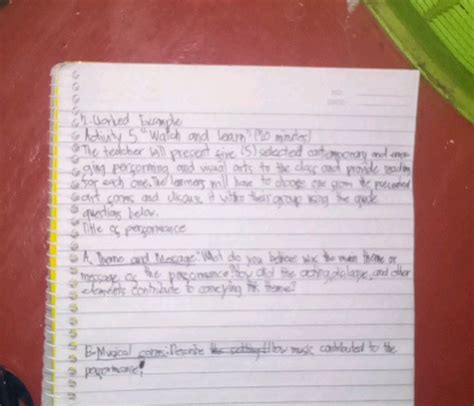 NO.
DATE
2. Worked Example
Activity 5 "Watch and Learn" (30 minutes)
The teacher will present five (5) selected contemporary and emer-
ging performing and visual arts to the class and provide reading
for each one. The learners will have to choose one from the presented
art forms and discuss it within their group using the guide
questions below.
Title of performance
A. Theme and Message: What do you believe was the main theme or
message of the performance? How did the acting, dialogue, and other
elements contribute to conveying this theme?
B- Musical Describe How music contributed to the
performance?